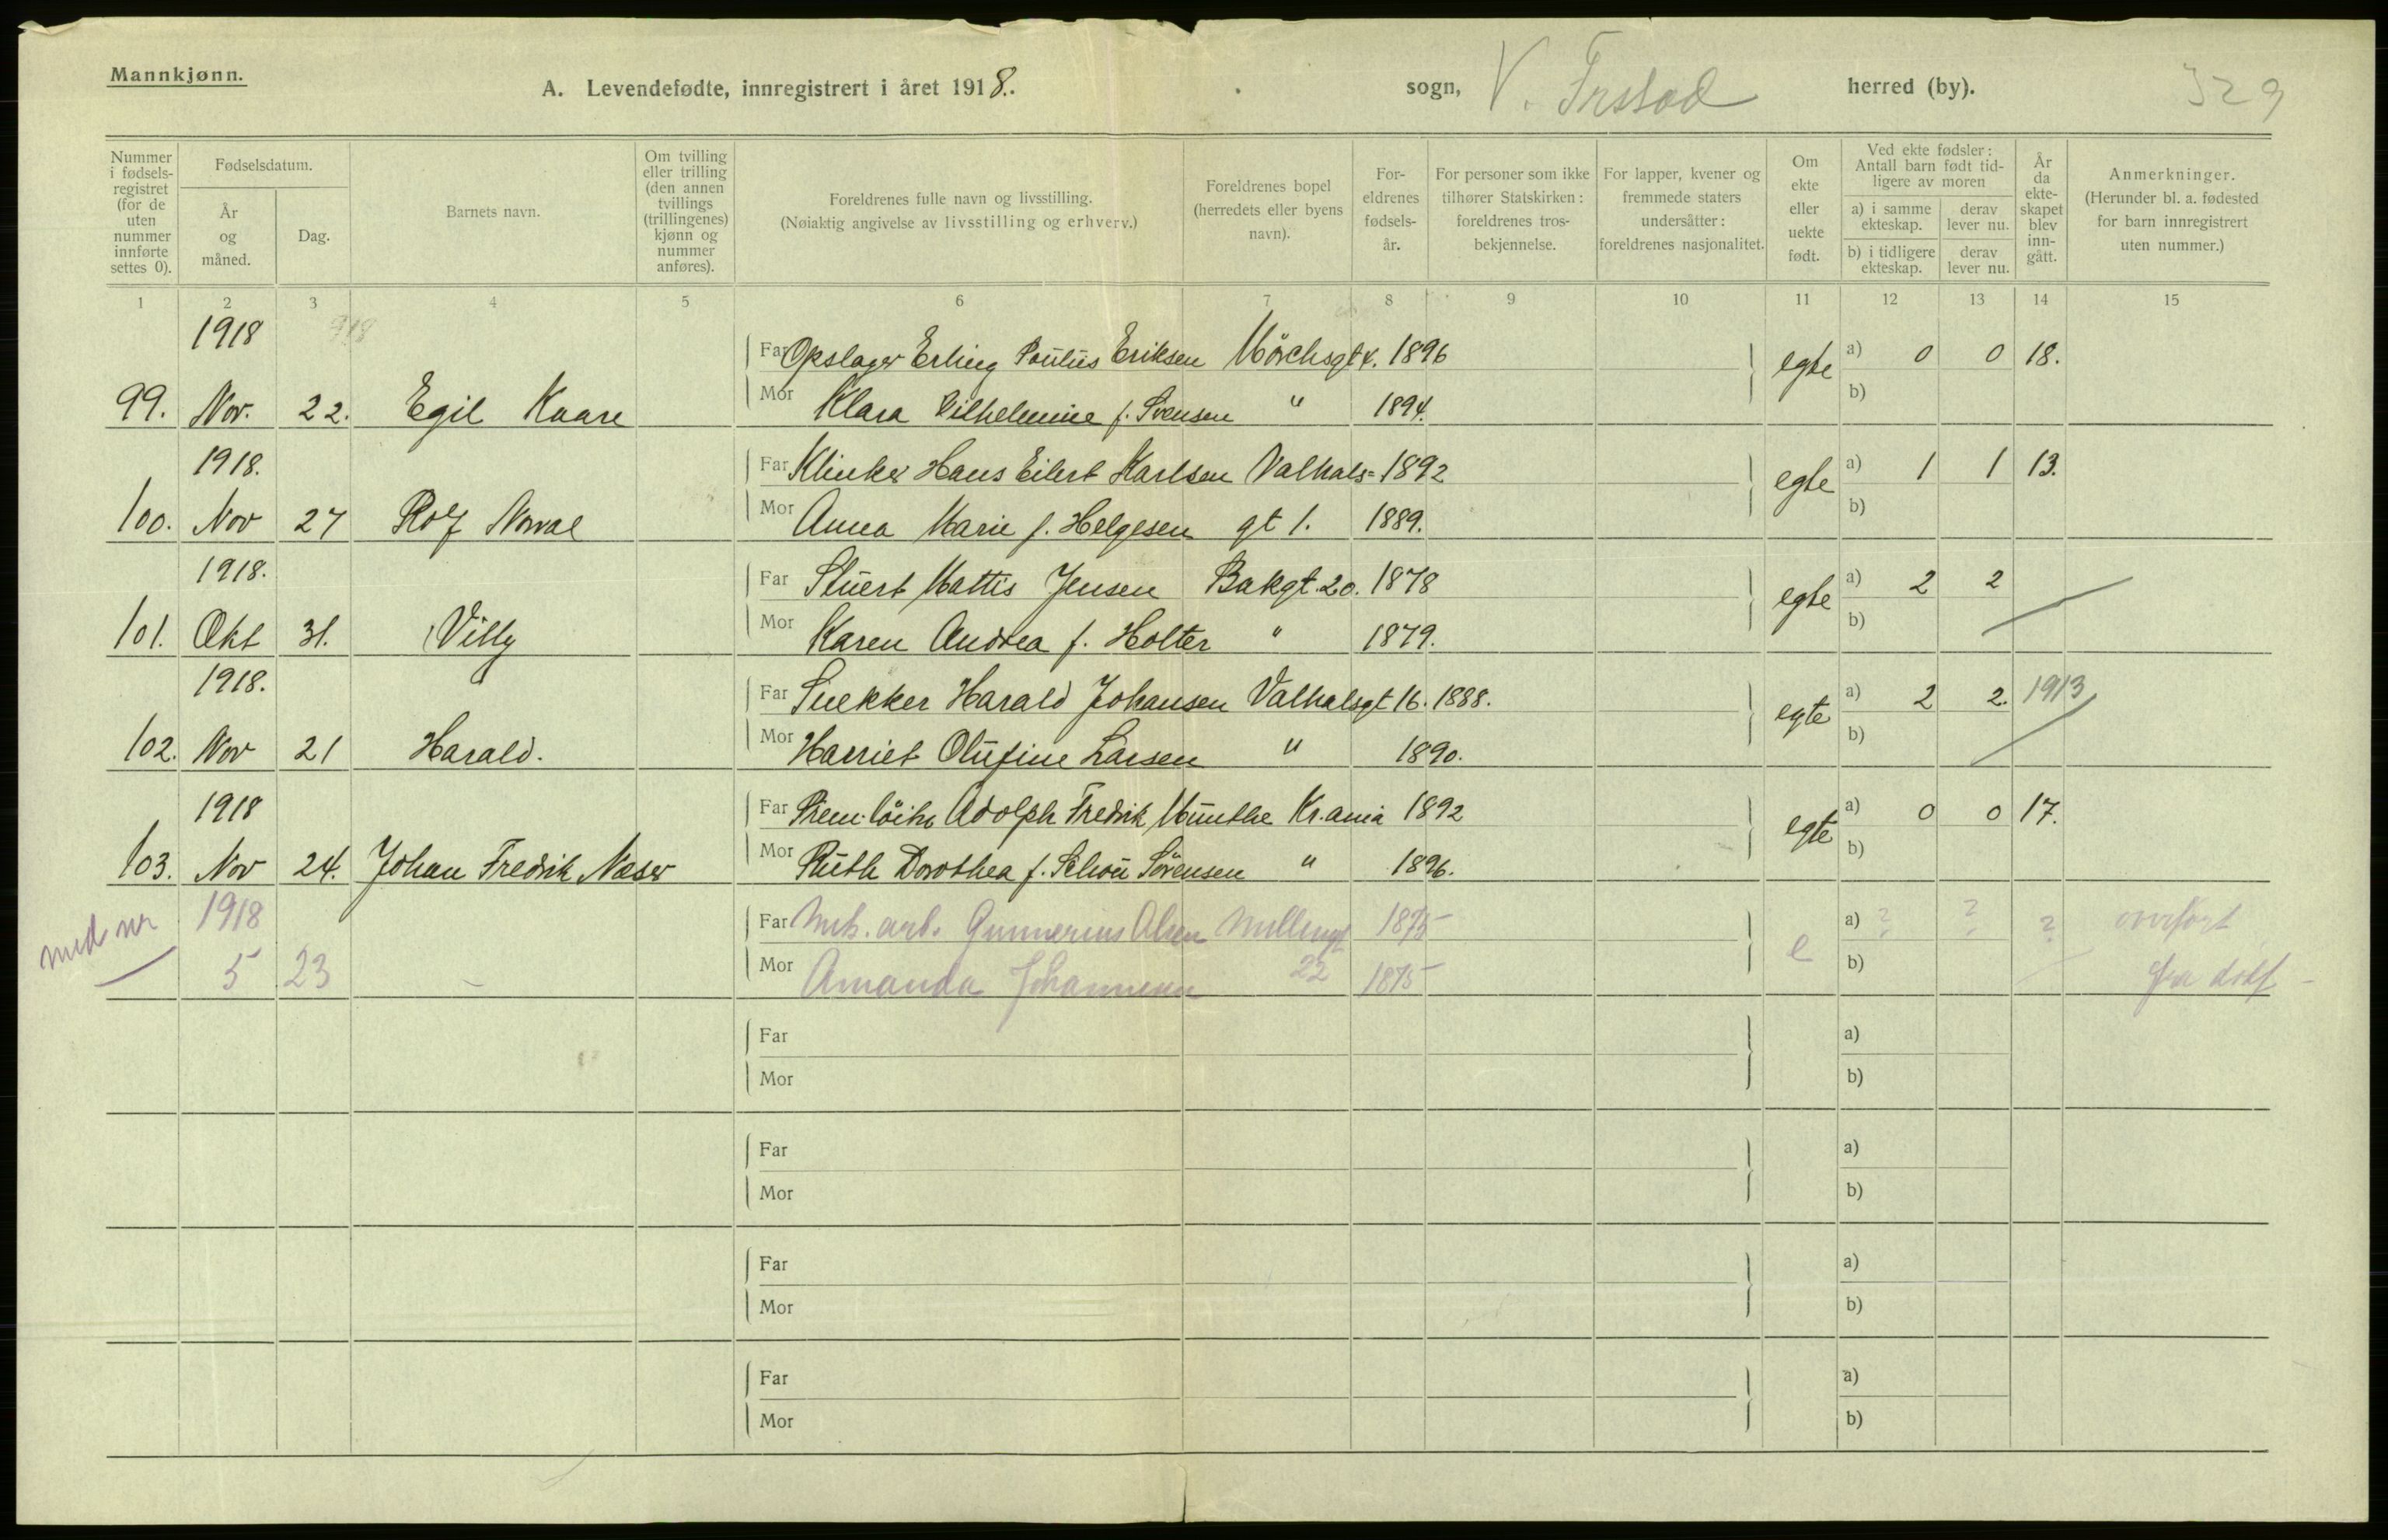 Mannkjønn.
A. Levendefødte, innregistrert i året 1918.
sogn, V. Frstad herred (by). 329
Nummer i fødsels-registret (for de uten nummer innførte settes 0).
Fødselsdatum.
År og måned.
Dag.
Barnets navn.
Om tvilling eller trilling (den annen tvillings (trillingenes) kjønn og nummer anføres).
Foreldrenes fulle navn og livsstilling.
(Nøiaktig angivelse av livsstilling og erhverv.)
Foreldrenes bopel (herredets eller byens navn).
For-eldrenes fødsels-år.
For personer som ikke tilhører Statskirken: foreldrenes tros-bekjennelse.
For lapper, kvener og fremmede staters undersåtter: foreldrenes nasjonalitet.
Om ekte eller uekte født.
Ved ekte fødsler: Antall barn født tid-ligere av moren
a) i samme ekteskap. derav lever nu.
b) i tidligere ekteskap. derav lever nu.
År da ekte-skapet blev inn-gått.
Anmerkninger.
(Herunder bl. a. fødested for barn innregistrert uten nummer.)
1 2 3 4 5 6 7 8 9 10 11 12 13 14 15
1918 Far Opslager Erling Paulus Eriksen Mörchsgt 4. 1896 egte a) 0 0 18.
99. Nov. 22. Egil Kaare Mor Klara Vilhelmine f. Svensen " 1894. b)
1918. Far Klinker Hans Eilert Karlsen Valhals= 1892 egte a) 1 1 13.
100. Nov 27 Rolf Norval Mor Anna Marie f. Helgesen gt 1. 1889. b)
1918. Far Stuert Mattis Jensen Bakgt. 20. 1878 egte a) 2 2
101. Okt 31. Villy Mor Karen Andrea f. Holter " 1879. b)
1918. Far Snekker Harald Johansen Valhalsgt 16. 1888. egte a) 2 2. 1913
102. Nov 21 Harald. Mor Harriet Olufine Larsen " 1890. b)
1918 Far Prem. löitn Adolph Fredrik Münthe Kr.ania 1892 egte a) 0 0 17.
103. Nov 24. Johan Fredrik Naser Mor Ruth Dorothea f. Schou Sörensen " 1896. b)
med nr 1918 Far Mek. arb. Gunnerius Olsen Mellemgt 1875 e a) ? ? ? overført
5 23 - Mor Amanda Johannesen 22 1875 b) fra dødf -
Far a)
Mor b)
Far a)
Mor b)
Far a)
Mor b)
Far a)
Mor b)